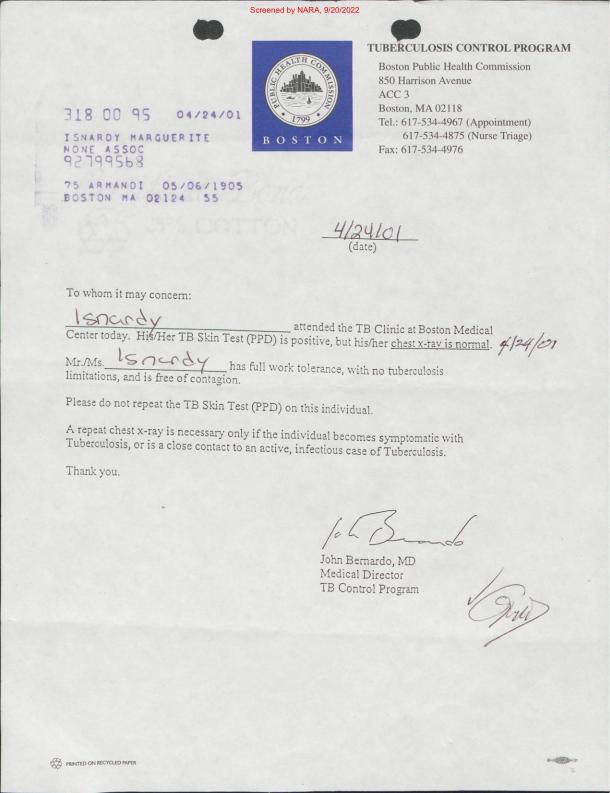 Screened by NARA, 9/20/2022
PUBLIC HEALTH COMMISSION
1799
BOSTON
TUBERCULOSIS CONTROL PROGRAM
Boston Public Health Commission
850 Harrison Avenue
ACC 3
Boston, MA 02118
Tel.: 617-534-4967 (Appointment)
617-534-4875 (Nurse Triage)
Fax: 617-534-4976
318 00 95 04/24/01
ISNARDY MARGUERITE
NONE ASSOC
92799568
75 ARMANDI 05/06/1905
BOSTON MA 02124 55
4/24/01
(date)
To whom it may concern:
Isnardy attended the TB Clinic at Boston Medical
Center today. His/Her TB Skin Test (PPD) is positive, but his/her chest x-ray is normal. 4/24/01
Mr./Ms. Isnardy has full work tolerance, with no tuberculosis
limitations, and is free of contagion.
Please do not repeat the TB Skin Test (PPD) on this individual.
A repeat chest x-ray is necessary only if the individual becomes symptomatic with
Tuberculosis, or is a close contact to an active, infectious case of Tuberculosis.
Thank you.
John Bernardo
John Bernardo, MD
Medical Director
TB Control Program
PRINTED ON RECYCLED PAPER